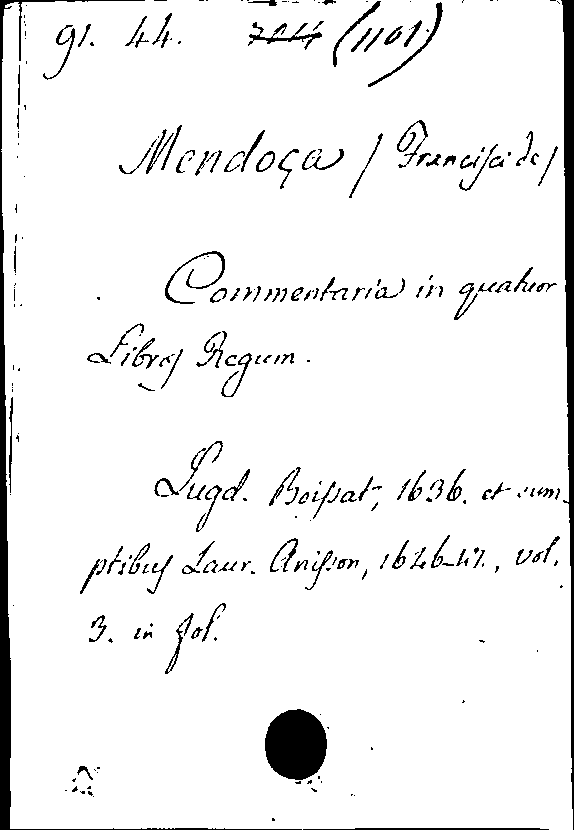 91. 44. 7014 (1101)
Mendoça / Francisci de /
Commentaria in quatuor
Libros Regum.
Lugd. Boissat, 1636. et sum-
ptibus Laur. Anisson, 1646-47., vol.
3. in fol.